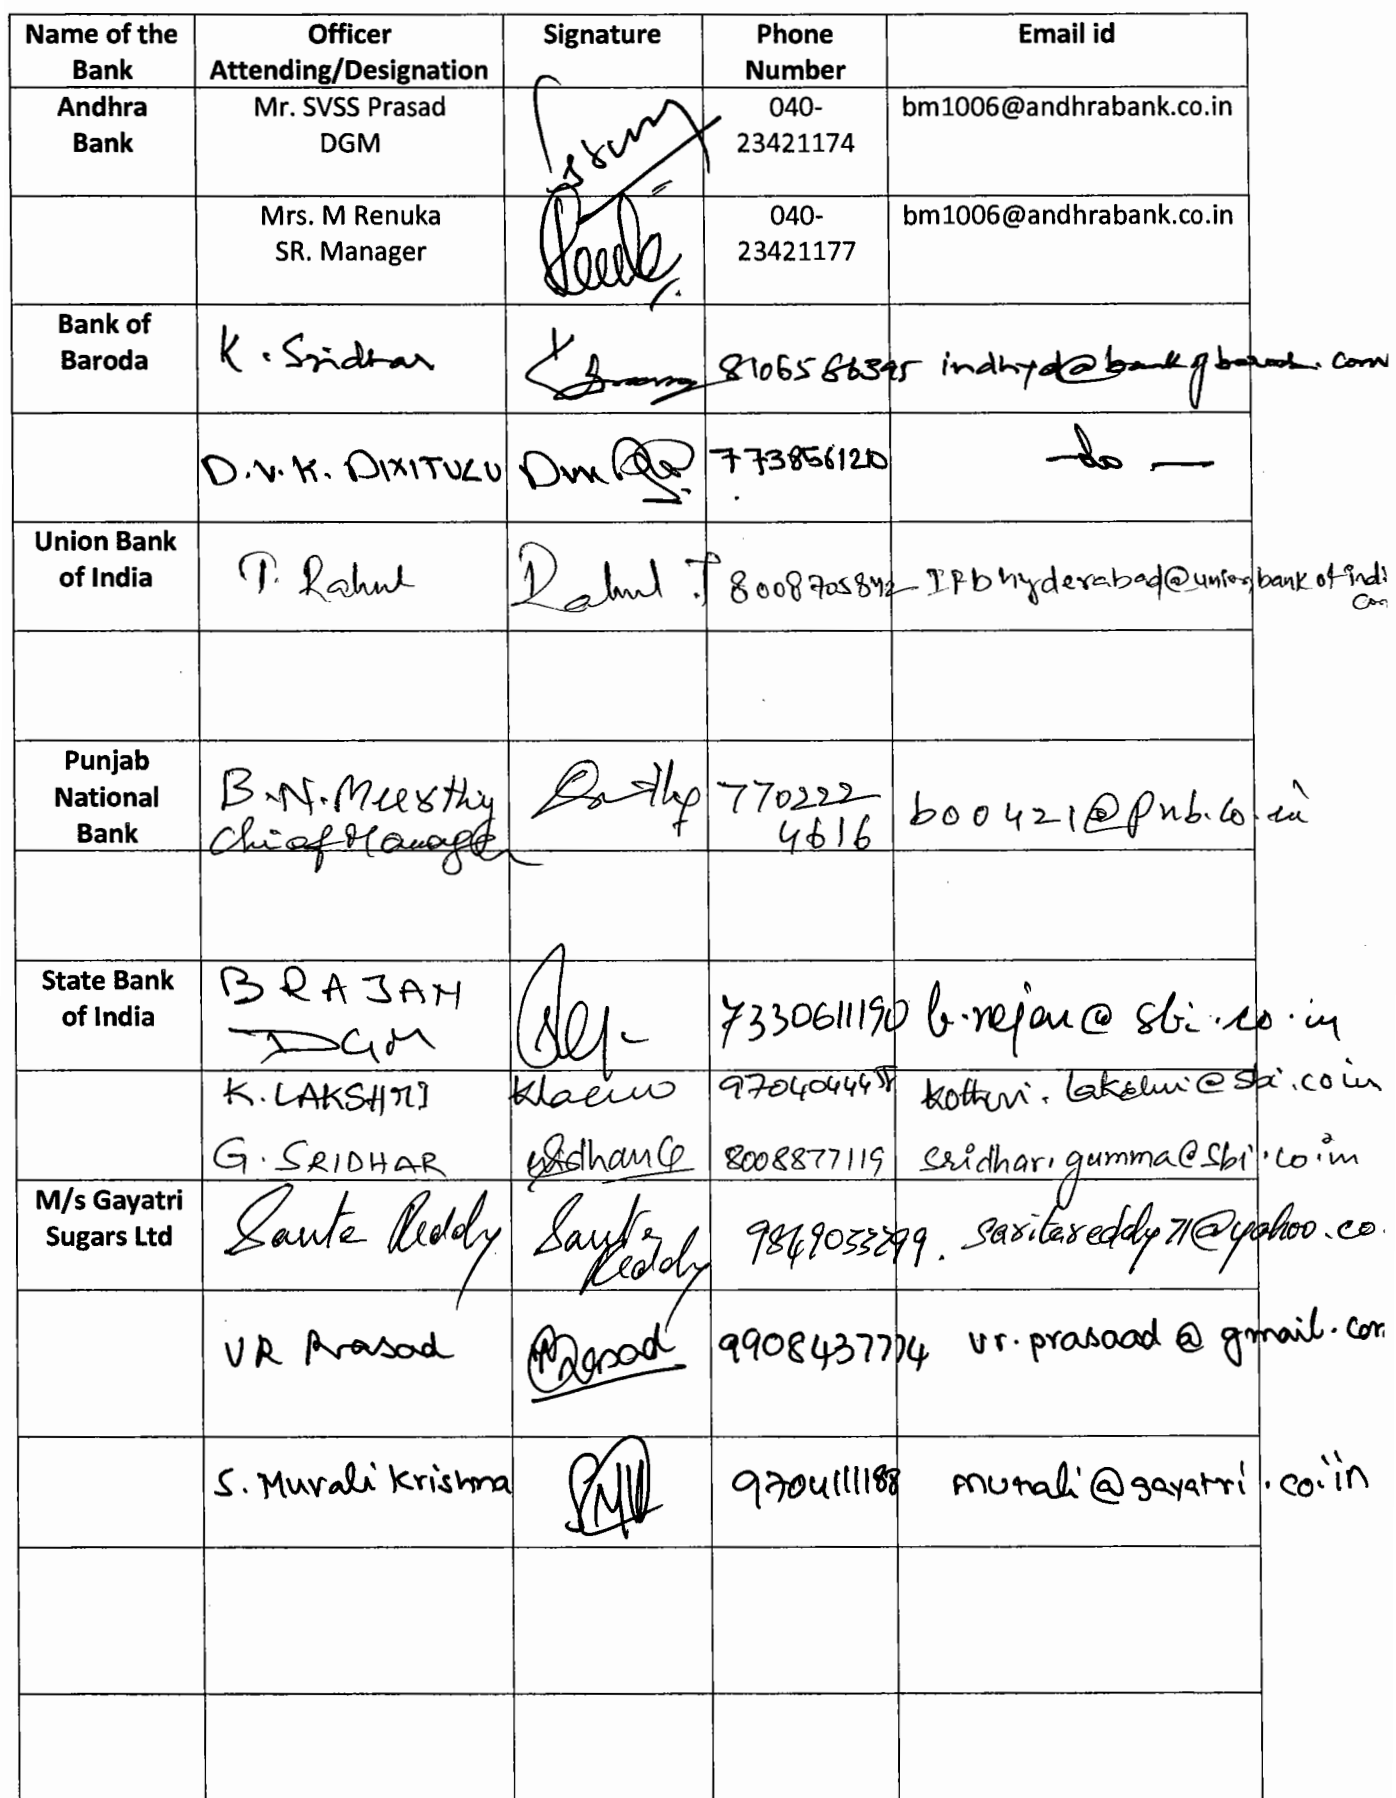 Name of the Bank Officer Attending/Designation Signature Phone Number Email id
Andhra Bank Mr. SVSS Prasad DGM 040-23421174 bm1006@andhrabank.co.in
Mrs. M Renuka SR. Manager 040-23421177 bm1006@andhrabank.co.in
Bank of Baroda K. Sridhar 8106586395 indhyd@bankofbaroda.com
D.V.K. DIXITULU 773856120 -do-
Union Bank of India T. Rahul Rahul .T 8008705842 IFBhyderabad@unionbankofindi com
Punjab National Bank B.N. Murthy Chief Manager 7702224616 bo0421@pnb.co.in
State Bank of India B RAJAN DGM 7330611190 b.rajan@sbi.co.in
K. LAKSHMI kothuri.lakshmi@sbi.co.in
G. SRIDHAR 8008877119 sridhar.gumma@sbi.co.in
M/s Gayatri Sugars Ltd Sarita Reddy Sarita Reddy saritareddy71@yahoo.co.
VR Prasad Prasad 9908437774 vr.prasaad@gmail.com
S. Murali Krishna 9704111188 murali@gayatri.co.in